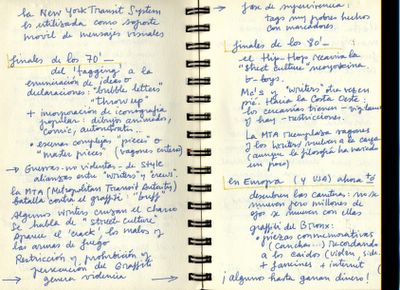 la New York Transit System
es utilizada como soporte
movil de mensajes visuales
finales de los 70'—
del 'tagging' a la
enumeración de ideas o
declaraciones: "bubble letters"
"throw up"
+ incorporación de iconografía
popular: dibujos animados,
comic, autorretrato...
+ escenas complejas 'pieces' o
"master pieces" (vagones enteros)
→ Guerras - no violentas - de Style
alianzas entre "writers" y "crews".
la MTA (Metropolitan Transit Autority)
batalla contra el graffiti: "buff"
Algunos writers cruzan el charco
Se habla de "street-culture"
Aparece el 'crack', los malos y
las armas de fuego
Restricción y prohibición y
persecución de Graffiti
→ genera violencia →
→ fase de supervivencia:
tags muy pobres hechos
con marcadores.
finales de los 80'—
el Hip-Hop reaviva la
"street culture" neoyorkina.
b-boys.
Mc's y "writers" otra vez en
pié. Hacia la Costa Oeste
los cercanías tienen - vigilancia
y hay - restricciones.
La MTA reemplaza vagones
y los writers vuelven a la carga
(aunque la filosofía ha variado
un poco)
en Europa (y USA) ahora tb
descubren las canteras: no se
mueven pero millones de
ojos se mueven con ellas
graffiti del Bronx:
piezas conmemorativas
(canchas...) recordando
a los caidos (violen, sida..
+ fanzines + internet
¡algunos hasta ganan dinero!